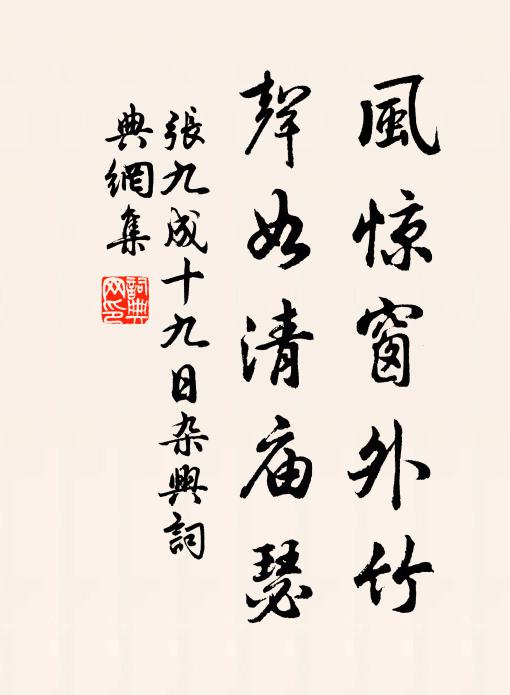 風惊窗外竹
聲如清庙瑟
張九成十九日杂興詞
典網集
詞典
网印